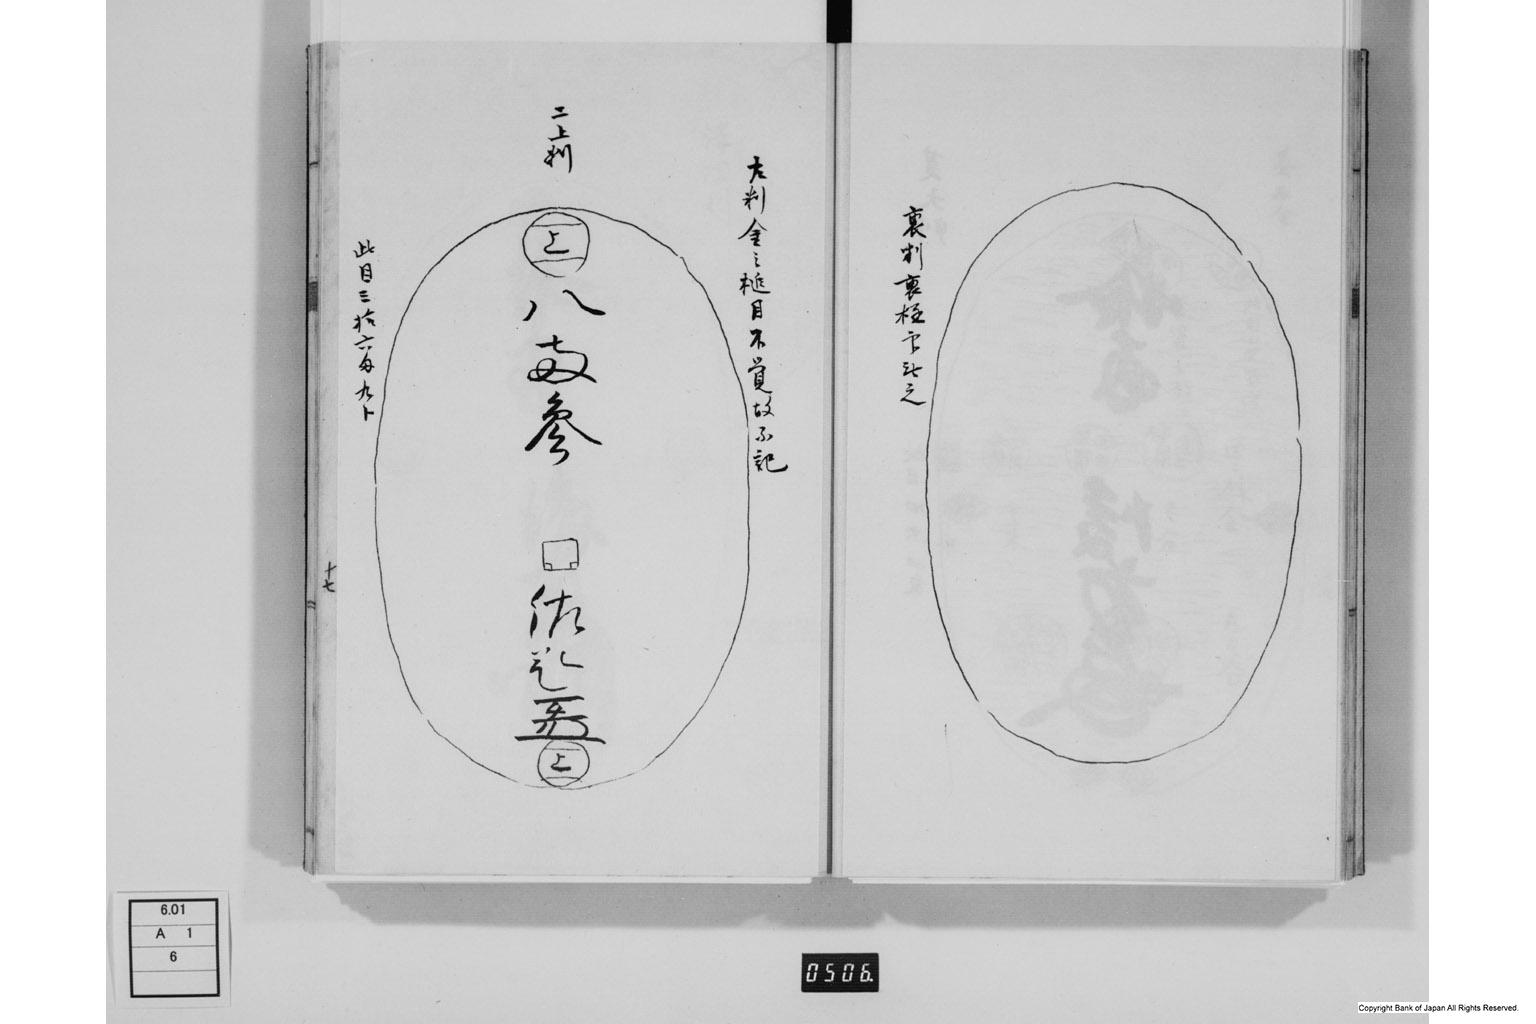 裏判裏極印無之
右判金之槌目不覚故不記
二上判
上
八両参
上
此目三拾六匁九卜
十七
6.01
A 1
6
0506.
Copyright Bank of Japan All Rights Reserved.